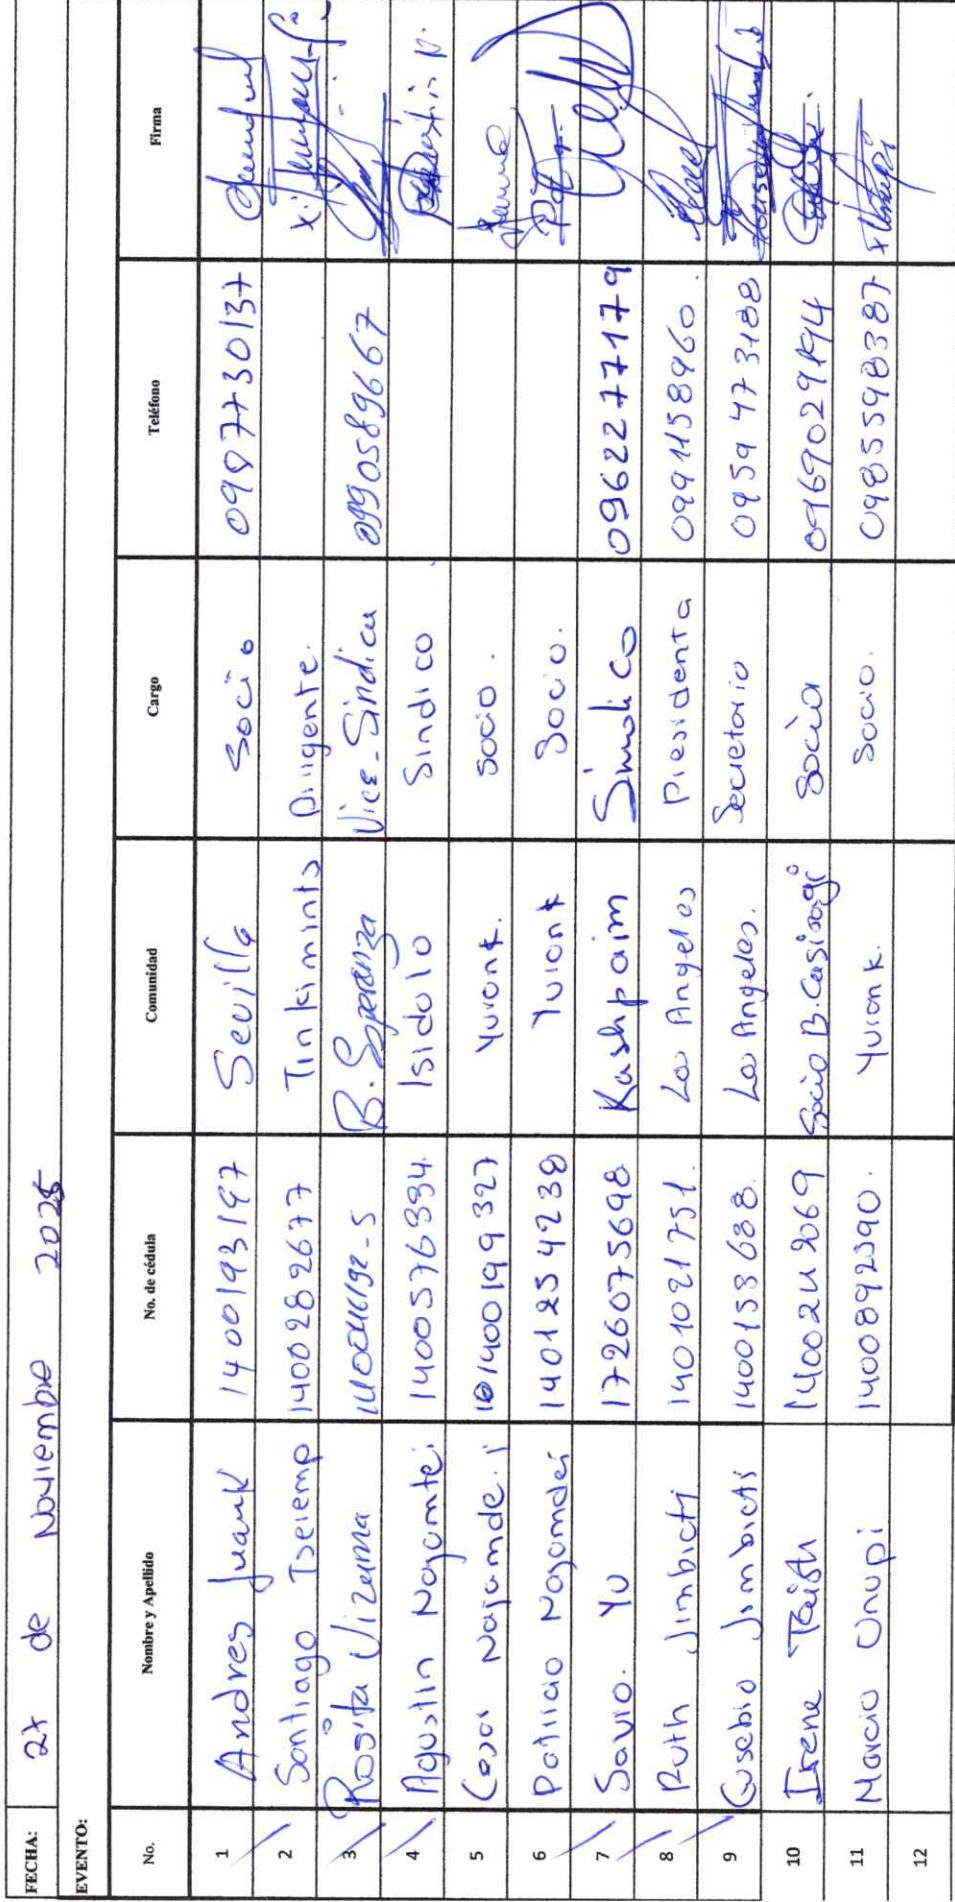 FECHA: 27 de Noviembre 2025
EVENTO:
No. Nombre y Apellido No. de cédula Comunidad Cargo Teléfono Firma
1 Andres Juank 1400193197 Sevilla Socio 0987730137
2 Santiago Tseremp 1400282677 Tinkimints Dirigente.
3 Rosita Vizuma B. Esperanza Vice-Sindica 0990589667
4 Agustin Najamtei 1400576334 Isidoro Sindico
5 Cesar Najamdei 1400199327 Yuronk. socio.
6 Patricio Najamdei 1401254238 Yuronk Socio.
7 Savio. Yu 1726075698 Kashpaim Sindico 0962277179
8 Ruth Jimbicti 1401021751. Los Angeles Presidenta 0991158960.
9 Eusebio Jimbicti 1400153688. Los Angeles. Secretario 0959473188
10 Irene Taish 1400242069 Socio B. Socia
11 Marcio Unupi Yuronk. Socio. 0985598387
12